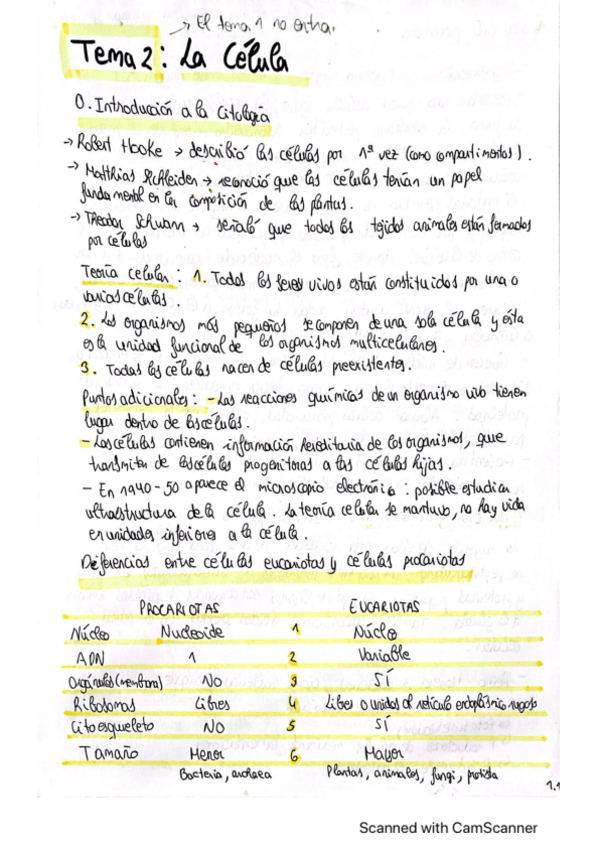 → El tema 1 no entra.
Tema 2: La Célula
0. Introducción a la Citología
→ Robert Hooke → describió las células por 1ª vez (como compartimentos).
→ Matthias Schleiden → reconoció que las células tenían un papel
fundamental en la composición de las plantas.
→ Theodor Schwann → señaló que todos los tejidos animales están formados
por células
Teoría celular: 1. Todos los seres vivos están constituidos por una o
varias células.
2. Los organismos más pequeños se componen de una sola célula y ésta
es la unidad funcional de los organismos multicelulares.
3. Todas las células nacen de células preexistentes.
Puntos adicionales: - Las reacciones químicas de un organismo vivo tienen
lugar dentro de las células.
- Las células contienen información hereditaria de los organismos, que
transmiten de las células progenitoras a las células hijas.
- En 1940-50 aparece el microscopio electrónico: posible estudiar
ultraestructura de la célula. La teoría celular se mantuvo, no hay vida
en unidades inferiores a la célula.
Diferencias entre células eucariotas y células procariotas
PROCARIOTAS EUCARIOTAS
Núcleo Nucleoide 1 Núcleo
ADN 1 2 Variable
Orgánulos (membrana) NO 3 SÍ
Ribosomas Libres 4 Libres o unidos al retículo endoplásmico rugoso
Citoesqueleto NO 5 SÍ
Tamaño Menor 6 Mayor
Bacteria, archaea Plantas, animales, fungi, protista
1.1
Scanned with CamScanner